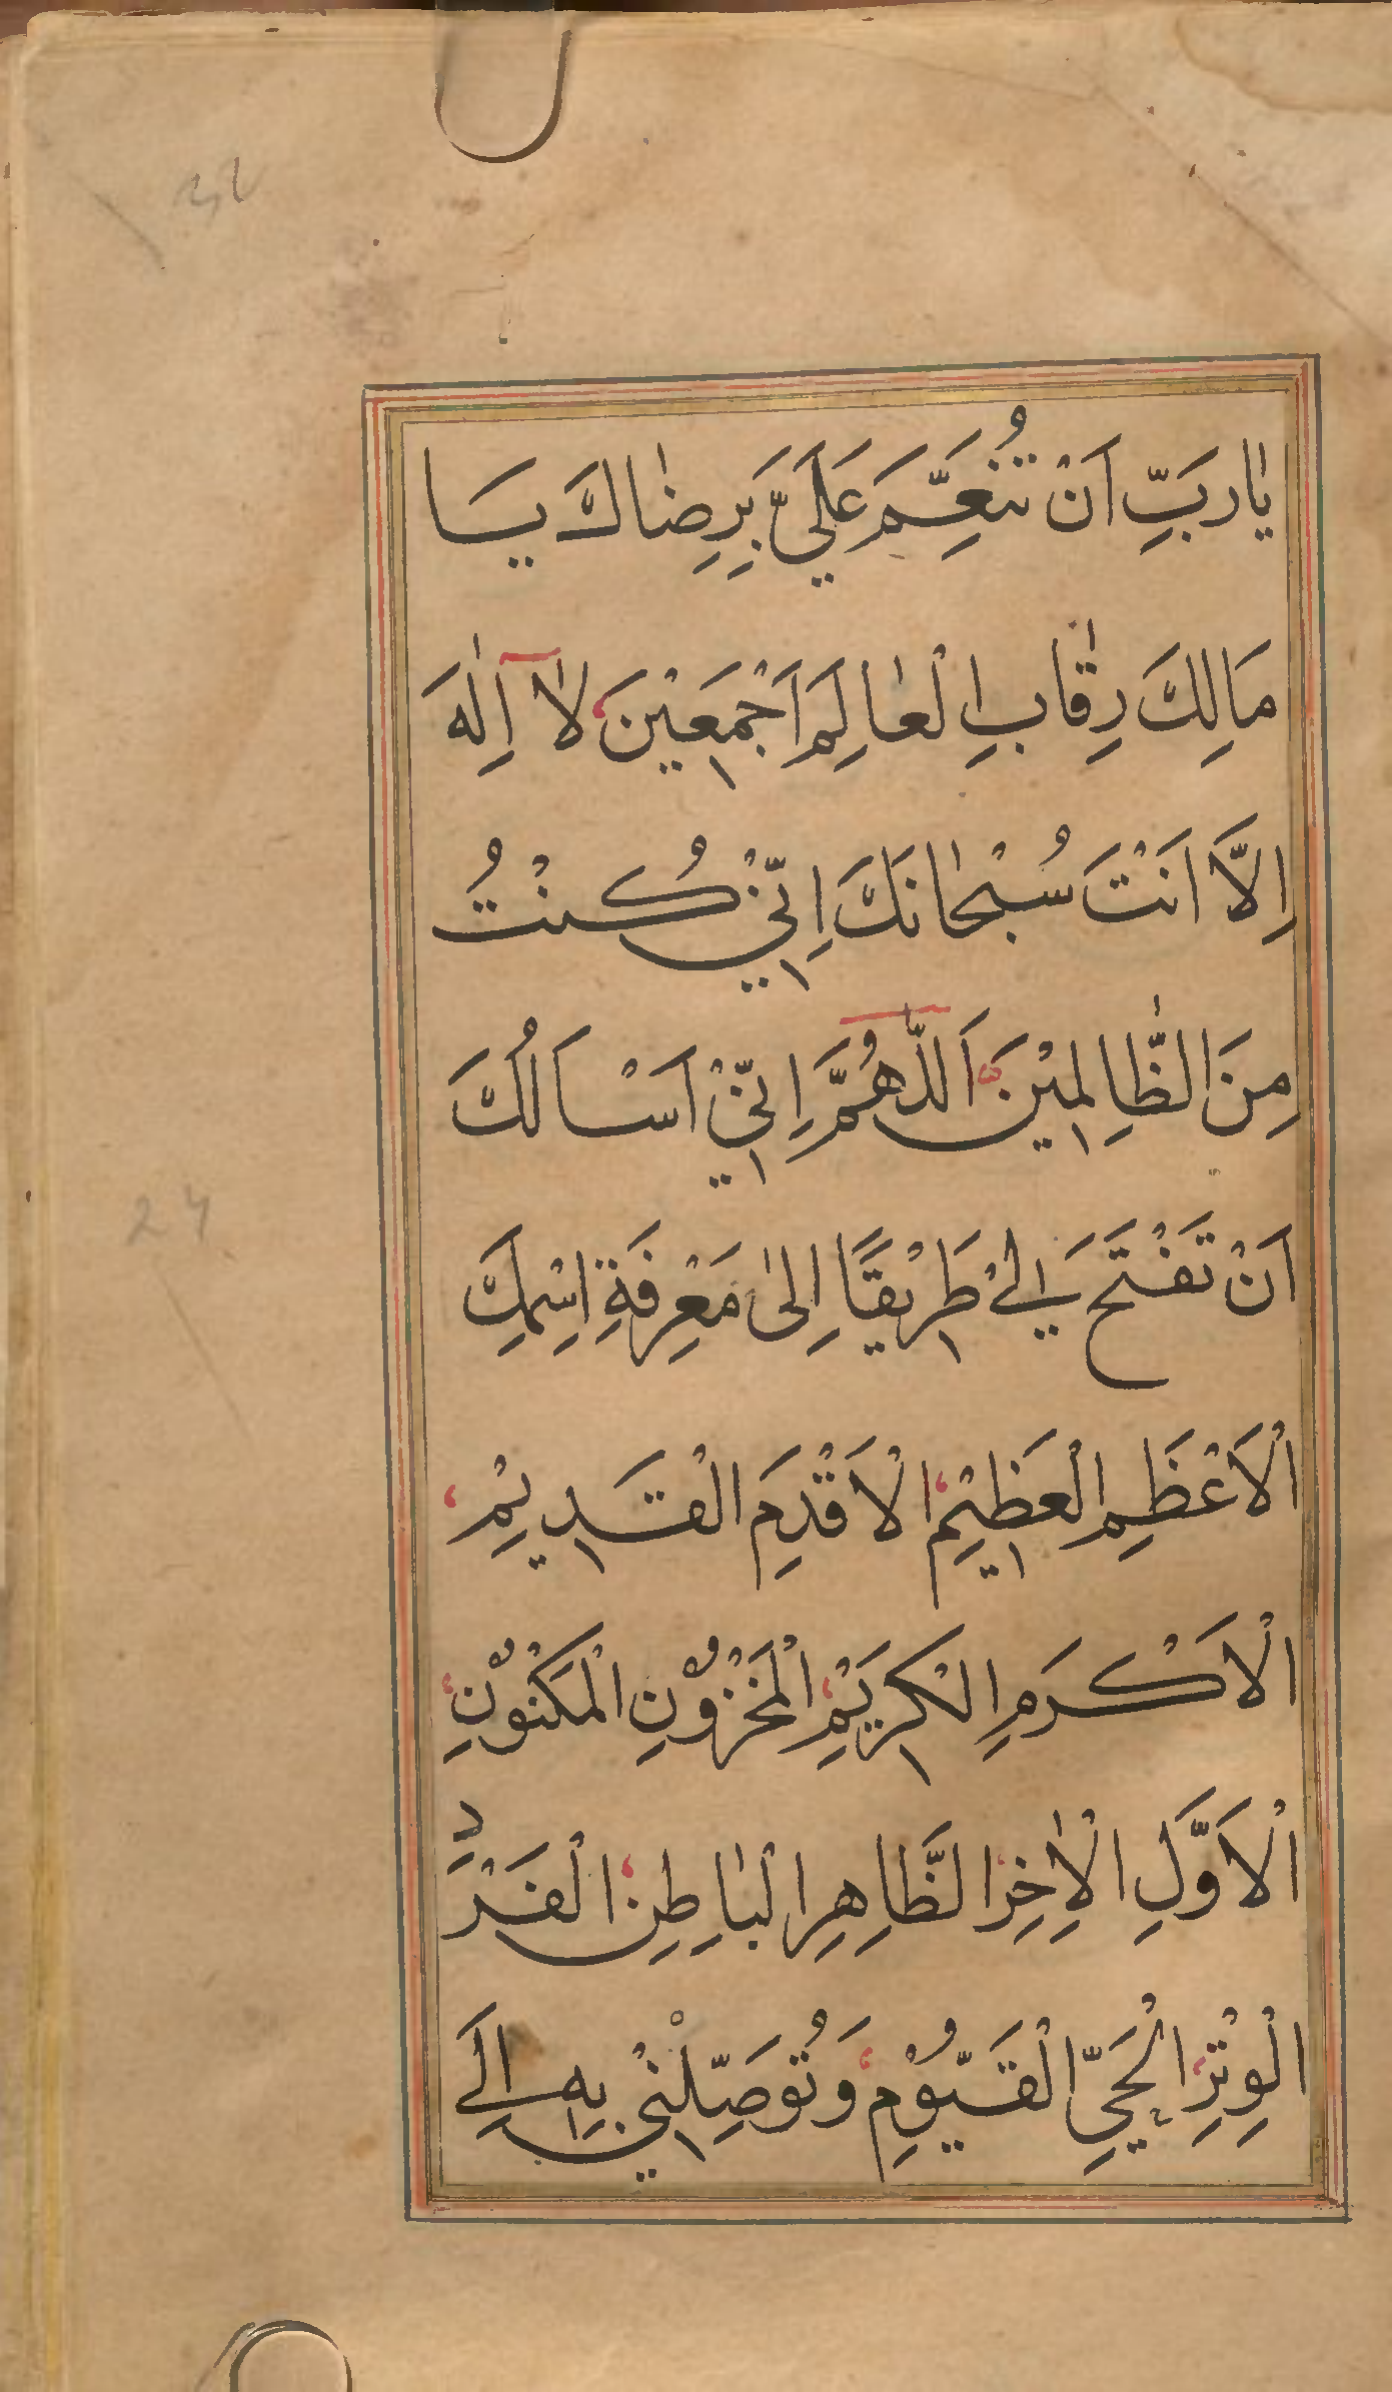 يَا رَبِّ اَنْ تُنَعِّمَ عَلَيَّ بِرِضَاكَ يَا
مَالِكَ رِقَابِ الْعَالَمِ اَجْمَعِيْنَ لَآ اِلٰهَ
اِلَّا اَنْتَ سُبْحَانَكَ اِنِّيْ كُنْتُ
مِنَ الظَّالِمِيْنَ اَللّٰهُمَّ اِنِّيْ اَسْاَلُكَ
اَنْ تَفْتَحَ لِيْ طَرِيْقًا اِلٰى مَعْرِفَةِ اسْمِكَ
الْاَعْظَمِ الْعَظِيْمِ الْاَقْدَمِ الْقَدِيْمِ
الْاَكْرَمِ الْكَرِيْمِ الْمَخْزُوْنِ الْمَكْنُوْنِ
الْاَوَّلِ الْاٰخِرِ الظَّاهِرِ الْبَاطِنِ الْفَرْدِ
الْوِتْرِ الْحَيِّ الْقَيُّوْمِ وَتُوَصِّلْنِيْ بِهِ اِلَى
24